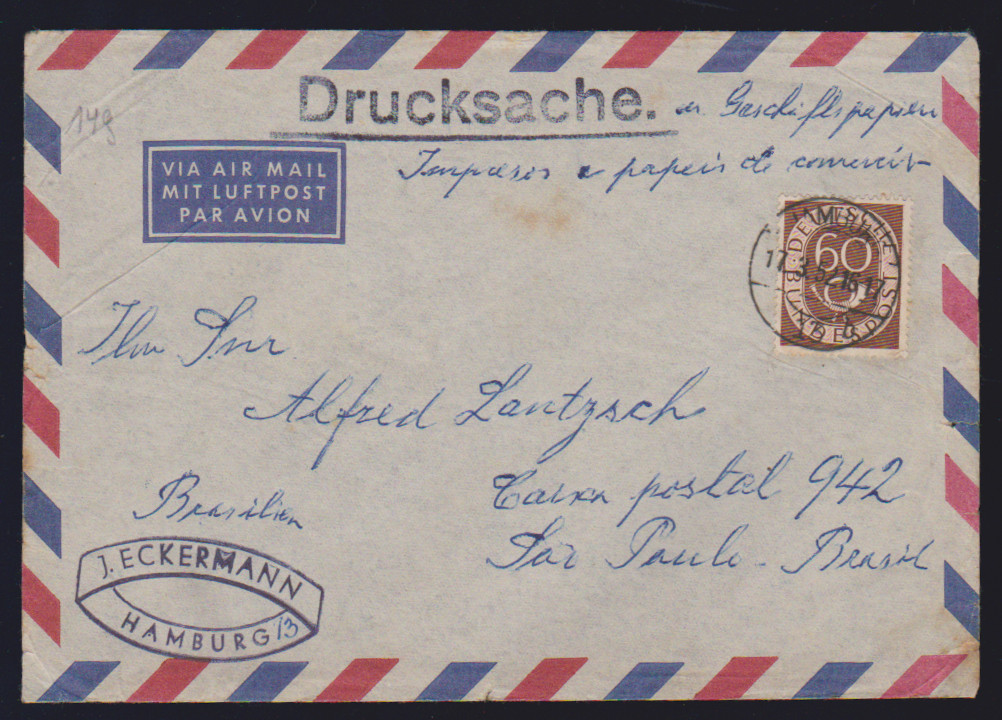 14g
Drucksache. u. Geschäftspapiere
Impresos e papeis de comercio
VIA AIR MAIL
MIT LUFTPOST
PAR AVION
DEUTSCHE
BUNDESPOST
60
17.3.52.16
Ilm Snr
Alfred Lantzsch
Caixa postal 942
Brasilien
São Paulo - Brasil
J. ECKERMANN
HAMBURG 13